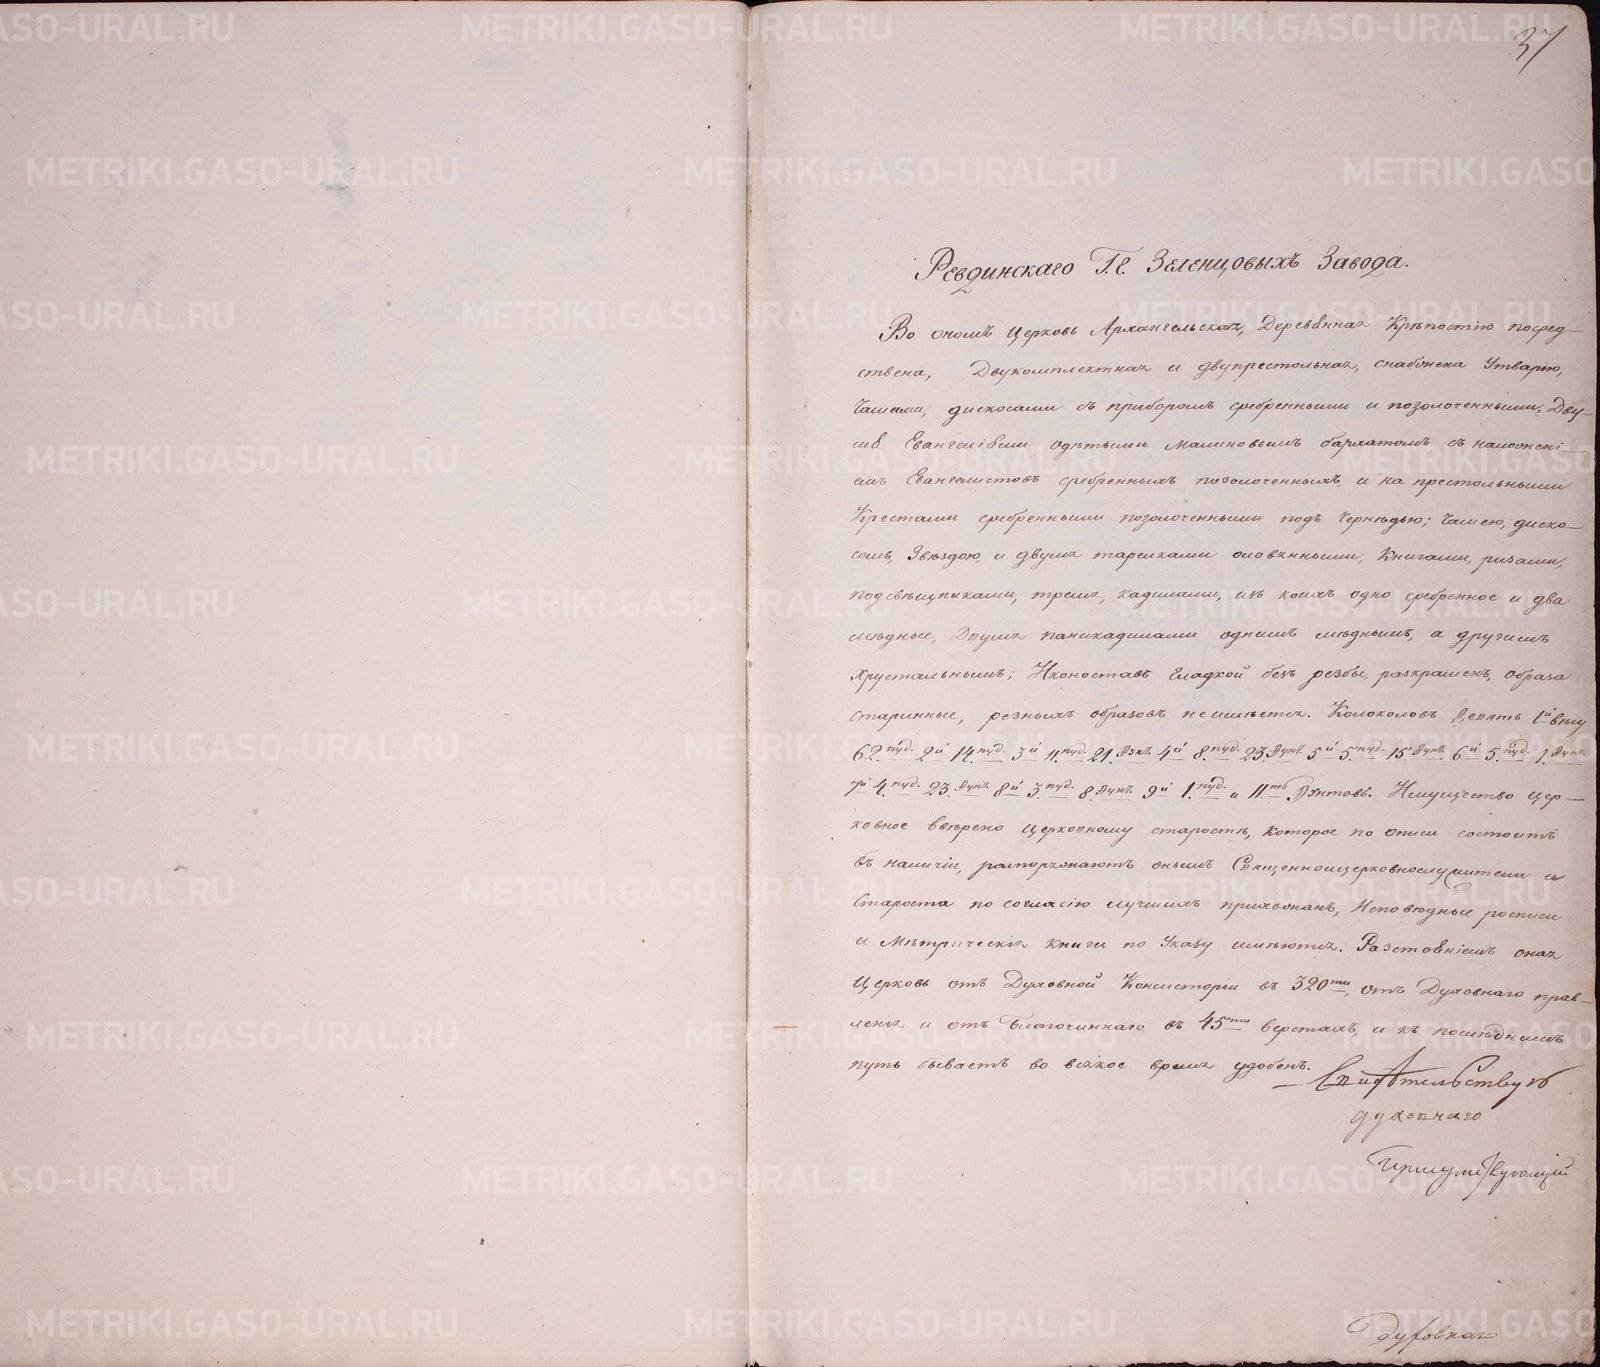 37
Ревдинскаго Г.г. Зеленцовыхъ Завода.
Во ономъ Церковь Архангельская, Деревянная Крѣпостію посред-
ствена, Двукомплектная и двупрестольная, снабжена Утварію,
Чашами, дискосами съ приборомъ сребренными и позолоченными, Дву-
мя Евангеліями одѣтыми малиновымъ бархатомъ съ наложені-
емъ Евангелистовъ сребренныхъ позолоченныхъ, и на престольными
Крестами сребренными позолоченными подъ Чернѣдью; Чашею, диско-
сомъ, Звѣздою, и двумя тарелками оловянными, Книгами, ризами,
подсвѣщниками, тремя, кадилами, изъ коихъ одно сребренное и два
мѣдные, Двумя паникадилами однимъ мѣднымъ, а другимъ
хрустальнымъ; Иконостасъ Гладкой безъ резбы, разкрашенъ, образа
старинные, резныхъ образовъ неимѣется. Колоколовъ Девять 1й вѣсу
62. пуд. 2й 14. пуд. 3й 11. пуд. 21. Фун. 4й 8. пуд. 23. Фун. 5й 5. пуд. 15 Фун. 6й 5. пуд. 1. Фун.
7й 4. пуд. 23. Фун. 8й 3. пуд. 8. Фун. 9й 1. пуд. и 11ть Фунтовъ. Имущество Цер-
ковное ввѣрено Церковному старостѣ, которое по описи состоитъ
въ наличіи, распоряжаютъ онымъ Священноицерковнослужители и
Староста по согласію лучшихъ прихожанъ, Исповѣдные росписи
и Мѣтрическія книги по Указу имѣются. Разстояніемъ оная
Церковь отъ Духовной Консисторіи въ 320ти, отъ Духовнаго прав-
ленія и отъ Благочиннаго въ 45ти верстахъ, и къ послѣднимъ
путь бываетъ во всякое время удобенъ.
Свидѣтельствуютъ
духовнаго
Присутствующій
Духовнаго
METRIKI.GASO-URAL.RU